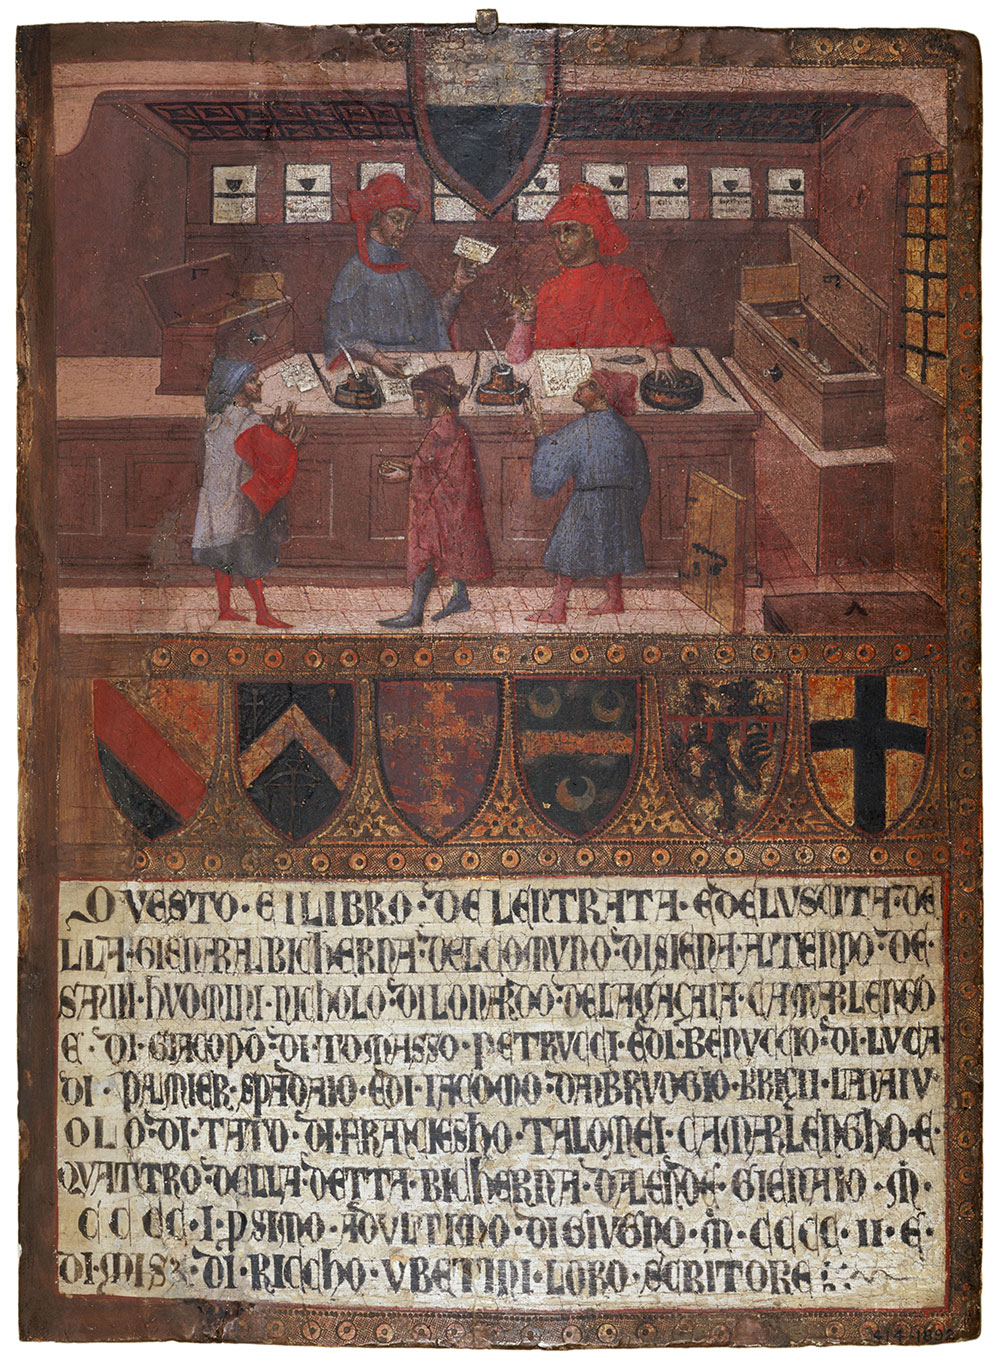 QVESTO · E ILIBRO · DELENTRATA · EDELVSCITA · DE
LLA · GIENERA · BICHERNA · DELCOMVNO · DISIENA · ALTENPO · DE ·
SAVII · HVOMINI · NICHOLO · DILONARDO · DELAGAÇAIA · CAMARLENGO
E · DI · GIACOPO · DI · TOMASSO · PETRVCCI · EDI · BENVCCIO · DI · LVCA
DI · PALMIER · SPADAIO · EDI · IACOMO · DANBRVOGIO · LANAIV
OLO · DI · TATO · DI · FRACIESHO · TALOMEI · CAMARLENGHO · E ·
QVATTRO · DELLA · DETTA · BICHERNA · DALENDE · GIENAIO · M̊ ·
CCCC · I · PSIMO · ADVLTIMO · DI · GIVGNO · M̊ · CCCC · II · E ·
DI · DI · RICCHO · VBETINI · LORO · SCRITORE
414-1892